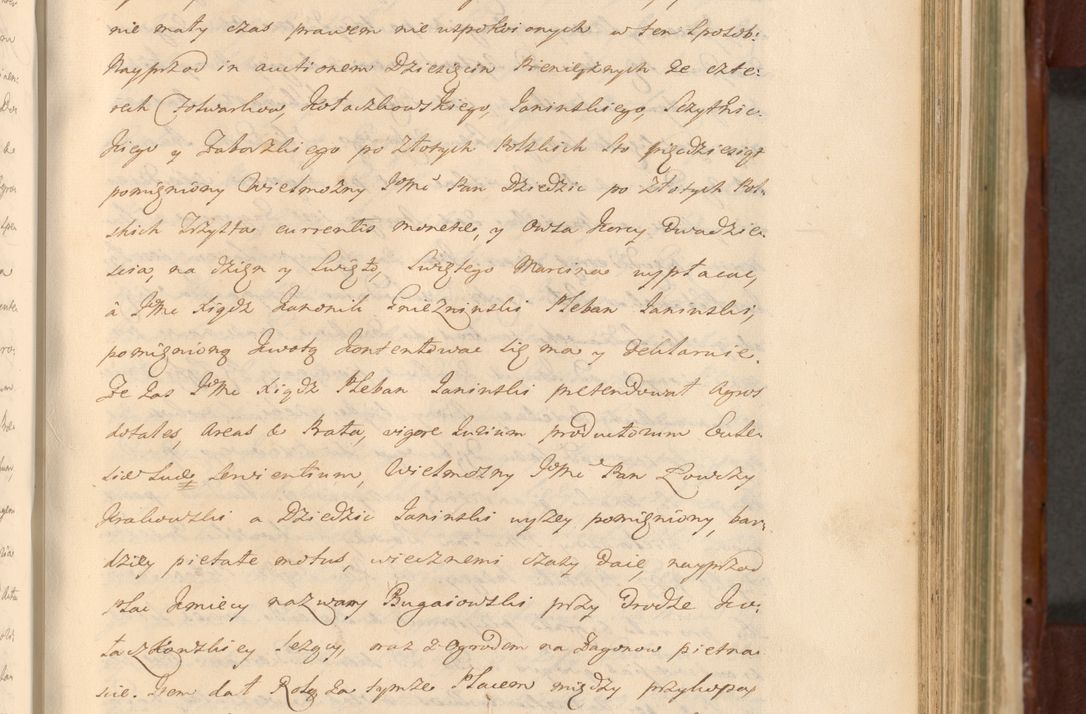 nie mały czas prawem nie uspokoionych w ten sposób:
Nayprzod in auctionem Dziesięcin Pieniężnych ze czte:
rech Folwarkow, Kołaczkowskiego, Janinskiego, Szytnic
kiego y Zaborskiego po Złotych Polskich sto
pomieniony Wielmożny JMć Pan Dziedzic po Złotych Pol:
skich Trzysta currentis monetæ, y Owsa Korcy Dwadzie:
scia, na dzień y Swięto, Swiętego Marcina wypłacac,
â JMć Xiądz Kanonik Gnieznienski Pleban Janinski,
pomienioną Kwotą Kontentowac się ma y deklaruie.
Ze zas JMć Xiądz Pleban Janinski pretendował Agros
dotales, Areas & Prata, vigore Jurium productorum Eccle:
siæ suæ servientium, Wielmożny JMć Pan Łowczy
Krakowski a Dziedzic Janinski wyżey pomieniony, bar:
dziey pietate motus, wiecznemi czasy daie, nayprzod
Plac Kmiecy nazwany Bugaiowski przy drodze Ko:
łaczkowskiey lezący, wraz z Ogrodem na Zagonow pietna:
scie. Item dał Rolą za tymże Placem między przykopą